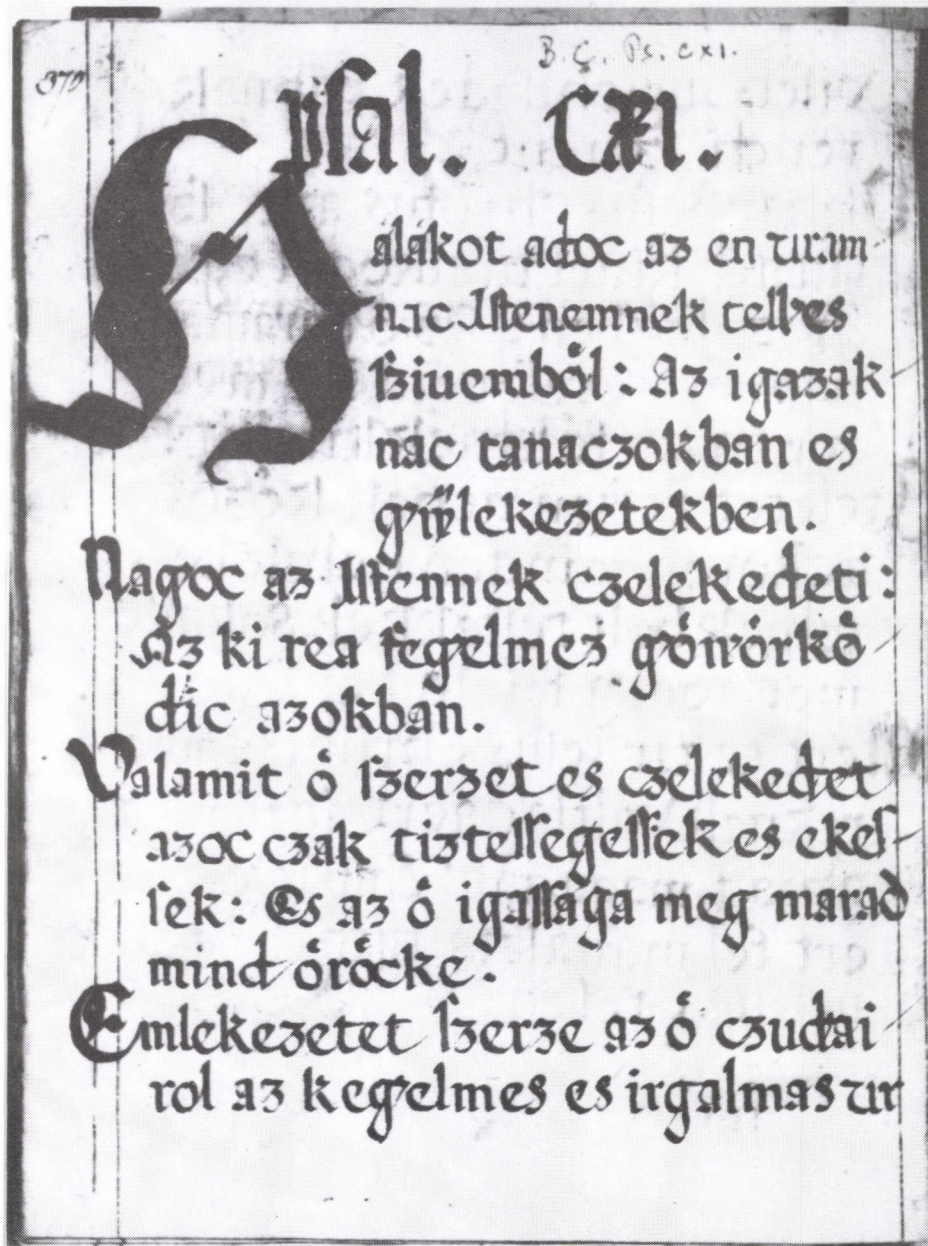 B. C. Ps. CXI.
375
Psal. CXI.
Halákot adoc az en uram
nac Istenemnek telljes
ſziuemből: Az igazak
nac tanaczokban es
gÿlekezetekben.
Nagoc az Istennek czelekedeti:
Az ki rea fegelmez gönörkő
dic azokban.
Valamit ő ſzerzet es czelekedet
azoc czak tiztelſſegeſſek es ekeſ-
ſek: Es az ő igaſſaga meg marad
mind őrőcke.
Emlekezetet ſzerze az ő czudai
rol az kegelmes es irgalmas ur